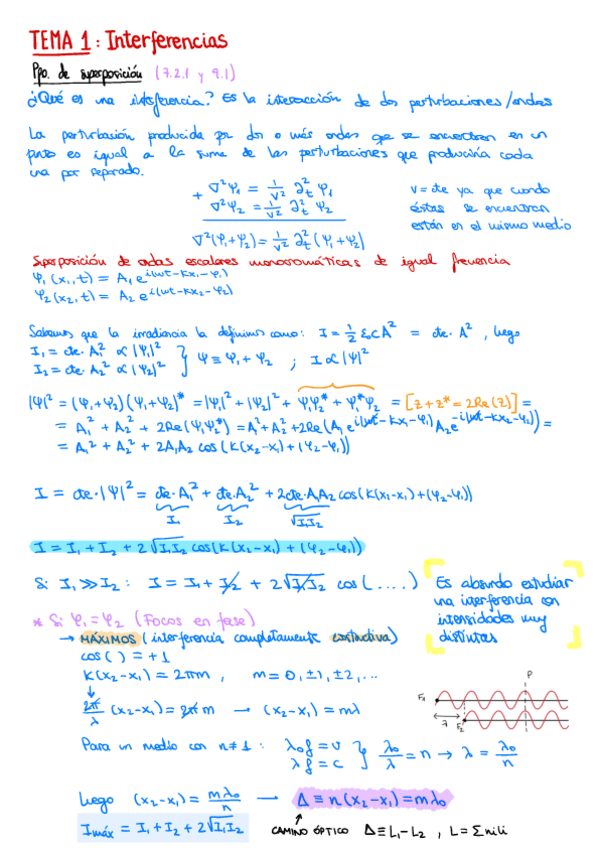 TEMA 1: Interferencias
Ppo. de superposición (7.2.1 y 9.1)
¿Qué es una interferencia? Es la interacción de dos perturbaciones/ondas
La perturbación producida por dos o más ondas que se encuentran en un
punto es igual a la suma de las perturbaciones que produciría cada
una por separado.
+ ∇²Ψ₁ = 1/v² ∂t² Ψ₁
∇²Ψ₂ = 1/v² ∂t² Ψ₂
∇²(Ψ₁+Ψ₂) = 1/v² ∂t² (Ψ₁+Ψ₂)
v = cte ya que cuando
éstas se encuentran
están en el mismo medio
Superposición de ondas escalares monocromáticas de igual frecuencia
Ψ₁(x₁,t) = A₁ e^i(ωt-Kx₁-φ₁)
Ψ₂(x₂,t) = A₂ e^i(ωt-Kx₂-φ₂)
Sabemos que la irradiancia la definimos como: I = 1/2 ε₀cA² = cte·A², luego
I₁ = cte·A₁² ∝ |Ψ₁|²
I₂ = cte·A₂² ∝ |Ψ₂|² } Ψ ≡ Ψ₁ + Ψ₂ ; I ∝ |Ψ|²
|Ψ|² = (Ψ₁+Ψ₂)(Ψ₁+Ψ₂)* = |Ψ₁|² + |Ψ₂|² + Ψ₁Ψ₂* + Ψ₁*Ψ₂ = [z+z* = 2Re(z)] =
= A₁² + A₂² + 2Re(Ψ₁Ψ₂*) = A₁²+A₂²+2Re(A₁ e^i(ωt-Kx₁-φ₁) A₂ e^-i(ωt-Kx₂-φ₂)) =
= A₁² + A₂² + 2A₁A₂ cos(K(x₂-x₁)+(φ₂-φ₁))
I = cte·|Ψ|² = cte·A₁² + cte·A₂² + 2cte·A₁A₂ cos(K(x₂-x₁)+(φ₂-φ₁))
I₁ I₂ √I₁I₂
I = I₁ + I₂ + 2√I₁I₂ cos(K(x₂-x₁) + (φ₂-φ₁))
Si I₁ ≫ I₂ : I = I₁ + I₂ + 2√I₁I₂ cos(....)
Es absurdo estudiar
una interferencia con
intensidades muy
distintas
* Si φ₁ = φ₂ (Focos en fase)
→ MÁXIMOS (interferencia completamente constructiva)
cos( ) = +1
K(x₂-x₁) = 2πm , m = 0, ±1, ±2, ...
2π/λ (x₂-x₁) = 2πm → (x₂-x₁) = mλ
P
F₁
λ
F₂
Para un medio con n≠1 : λ₀f = v
λf = c } λ₀/λ = n → λ = λ₀/n
Luego (x₂-x₁) = mλ₀/n → Δ ≡ n(x₂-x₁) = mλ₀
Imáx = I₁ + I₂ + 2√I₁I₂
CAMINO ÓPTICO Δ ≡ L₁-L₂ , L = Σnᵢlᵢ